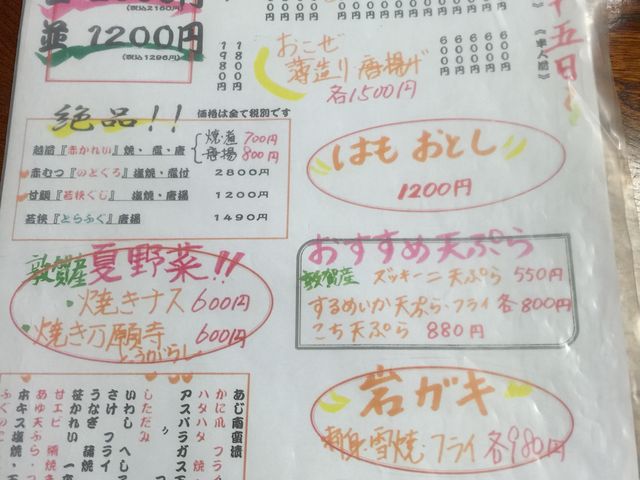 (税込2160円)
並 1200円
(税込1296円)
1980円
1800円
《本人間》
十五日
おこぜ
薄造り 唐揚げ
各1500円
絶品!!
価格は全て税別です
越前『赤かれい』焼・煮・唐
焼・煮 700円
唐揚 800円
赤むつ『のどぐろ』塩焼・煮付 2800円
甘鯛『若狭ぐじ』塩焼・唐揚 1200円
若狭『とらふぐ』唐揚 1490円
はもおとし
1200円
敦賀産 夏野菜!!
・焼きナス 600円
・焼き万願寺 600円
とうがらし
おすすめ天ぷら
敦賀産 ズッキーニ天ぷら 550円
するめいか天ぷら・フライ各800円
こち天ぷら 880円
岩ガキ
刺身・雪焼・フライ各980円
あじ南蛮漬
かに爪 フライ
ハタハタ 焼・
アスパラガス天
〃 フ
しただみ
いわし へしこ
さけ フライ
うなぎ 蒲焼
笹かれい 一夜
甘エビ 
あゆ天ぷら・フ
本キス塩焼・天